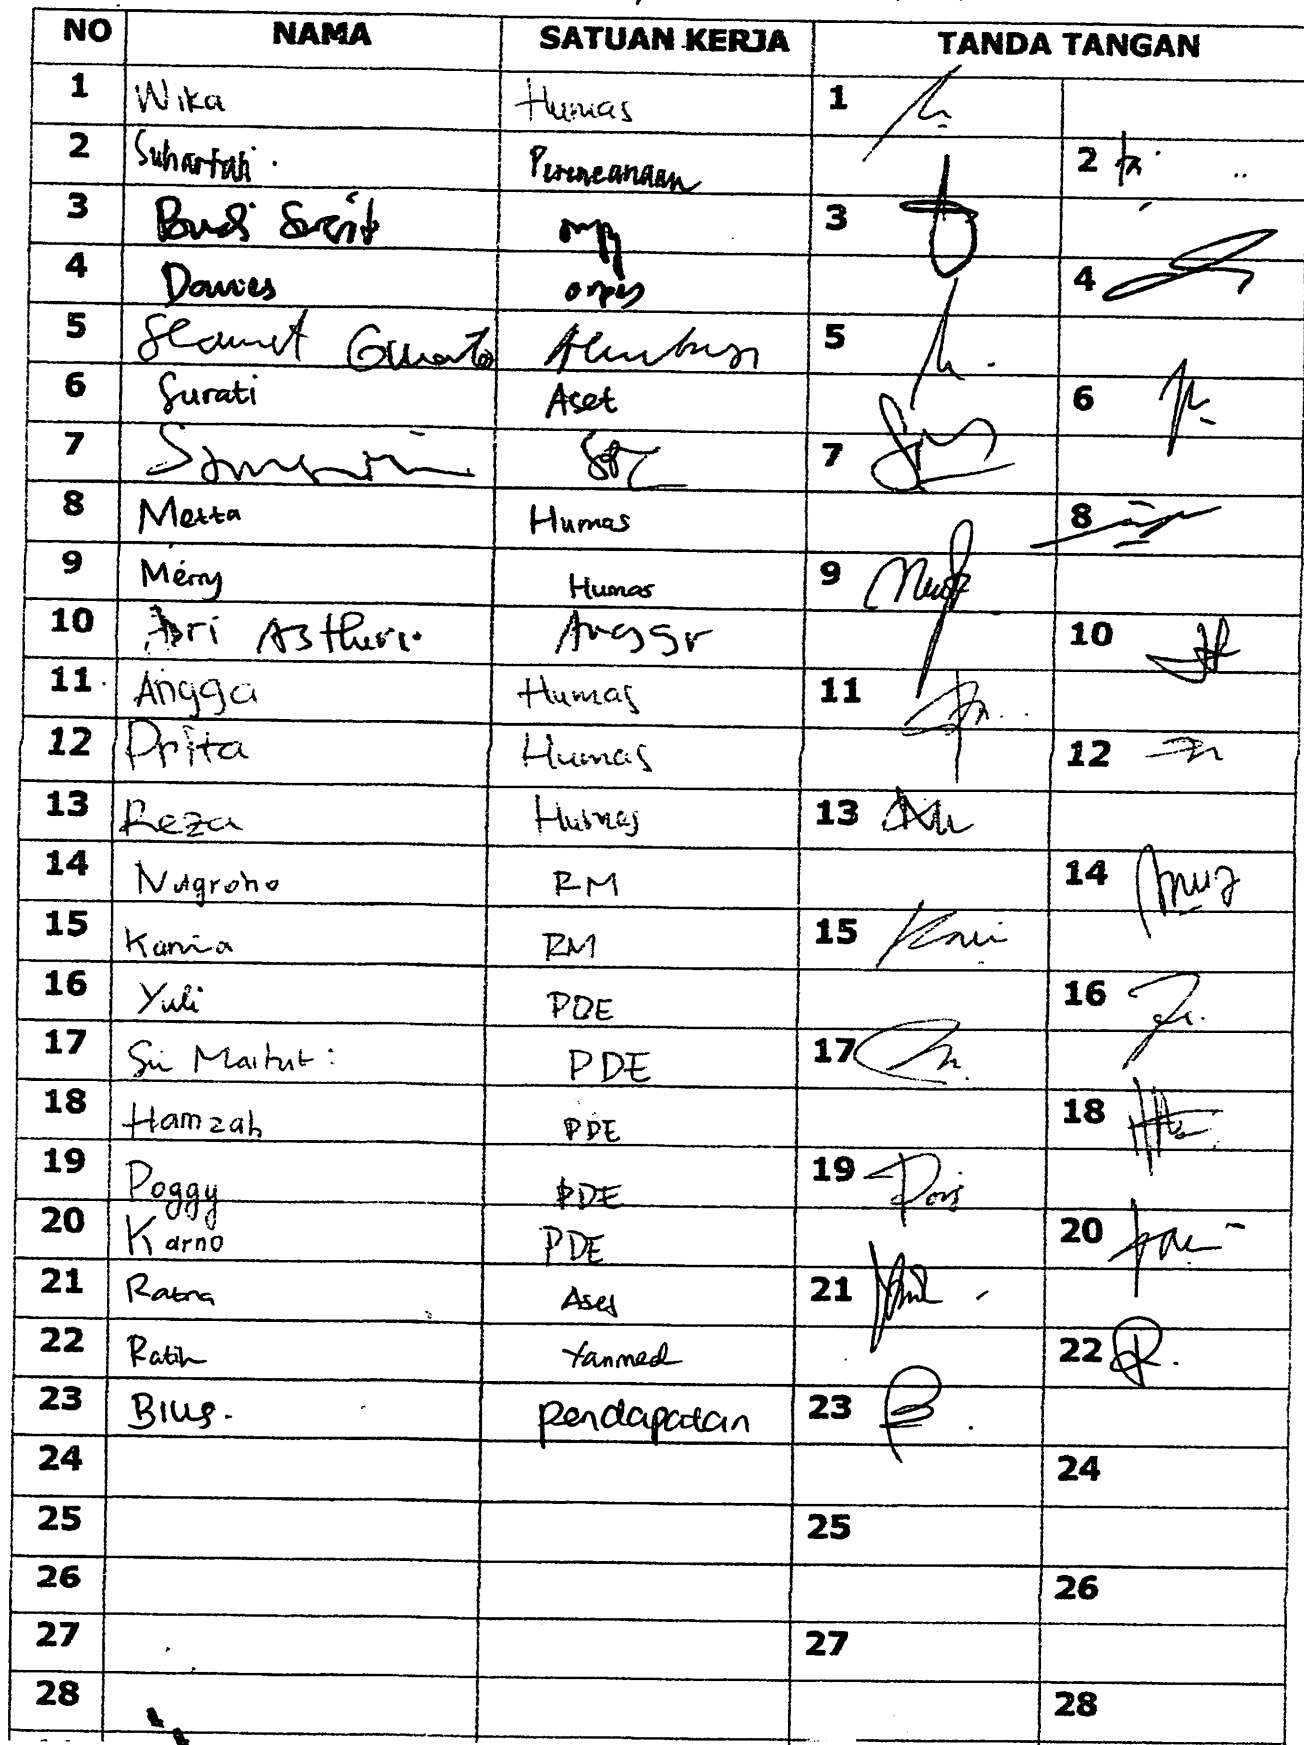 NO NAMA SATUAN KERJA TANDA TANGAN
1 Wika Humas 1
2 Suhartati. Perencanaan 2
3 Budi 3
4 Davies 4
5 Slamet 5
6 Surati Aset 6
7 7
8 Metta Humas 8
9 Merry Humas 9
10 10
11 Angga Humas 11
12 Prita Humas 12
13 Reza Humas 13
14 Nugroho RM 14
15 Kania RM 15
16 Yuli PDE 16
17 Sri PDE 17
18 Hamzah PDE 18
19 Poggy PDE 19
20 Karno PDE 20
21 Ratna 21
22 Ratih Yanmed 22
23 Bius. Pendapatan 23
24 24
25 25
26 26
27 27
28 28